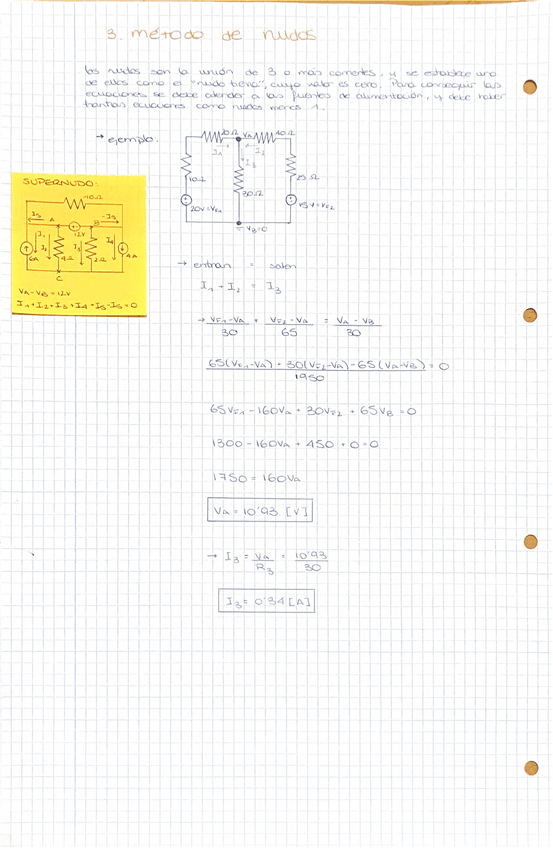 3. método de nudos
los nudos son la unión de 3 o más corrientes, y se establece uno
de ellos como el "nudo tierra", cuyo valor es cero. Para conseguir las
ecuaciones se debe atender a las fuentes de alimentación, y debe haber
tantas ecuaciones como nudos menos 1.
→ ejemplo:
20Ω VA 40Ω
I1 I2
10Ω I3 25Ω
30Ω
20V=VE1 15V=VE2
VB=0
SUPERNUDO:
10Ω
I5 A 12V B -I5
I1 I2 I3 I4
6A 4Ω 2Ω 4A
C
VA-VB=12V
I1+I2+I3+I4+I5-I5=0
→ entran = salen
I1 + I2 = I3
→ VE1-VA / 30 + VE2-VA / 65 = VA-VB / 30
65(VE1-VA) + 30(VE2-VA) - 65(VA-VB) / 1950 = 0
65VE1 - 160VA + 30VE2 + 65VB = 0
1300 - 160VA + 450 + 0 = 0
1750 = 160VA
VA = 10'93 [V]
→ I3 = VA / R3 = 10'93 / 30
I3 = 0'34 [A]